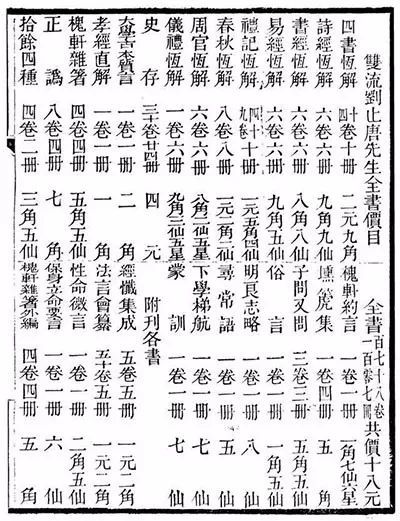 雙流劉止唐先生全書價目 全書一百七十八卷一百零七冊共價十八元
四書恆解 十四卷十冊 二元九角 槐軒約言 一卷一冊 一角七仙六星
詩經恆解 六卷六冊 九角九仙 壎箎集 一卷四冊 五角
書經恆解 六卷六冊 八角八仙 子問又問 三卷三冊 五角五仙
易經恆解 六卷六冊 九角五仙 俗言 一卷一冊 一角五仙
禮記恆解 四十九卷十冊 一元五角四仙 明良志略 一卷一冊 八仙
春秋恆解 八卷八冊 一元二角二仙 尋常語 一卷一冊 五仙
周官恆解 六卷六冊 八角二仙五星 下學梯航 一卷一冊 七仙
儀禮恆解 卷六冊 九角三仙五星 蒙訓 一卷一冊 七仙
史存 三十卷廿四冊 四元 附刊各書
大學古本質言 一卷一冊 二角 經懺集成 五卷五冊 一元二角
孝經直解 一卷一冊 一角 法言會纂 五十卷五冊 一元二角
槐軒雜著 四卷四冊 五角五仙 性命微言 一卷一冊 二角五仙
正譌 八卷四冊 七角 保身立命要言 一卷一冊 六仙
拾餘四種 四卷二冊 三角五仙 槐軒雜著外編 四卷四冊 五角